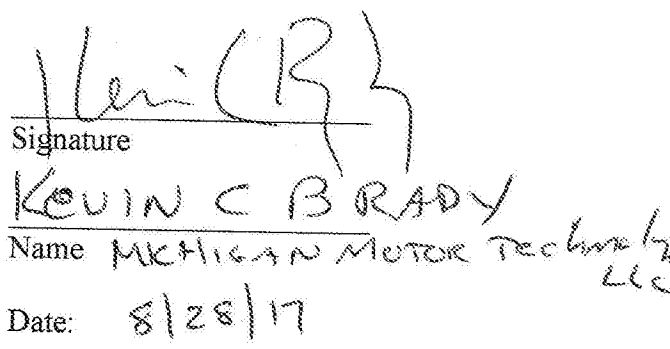 Kevin C B
Signature
KEVIN C BRADY
Name MICHIGAN MOTOR Technology
LLC
Date: 8/28/17